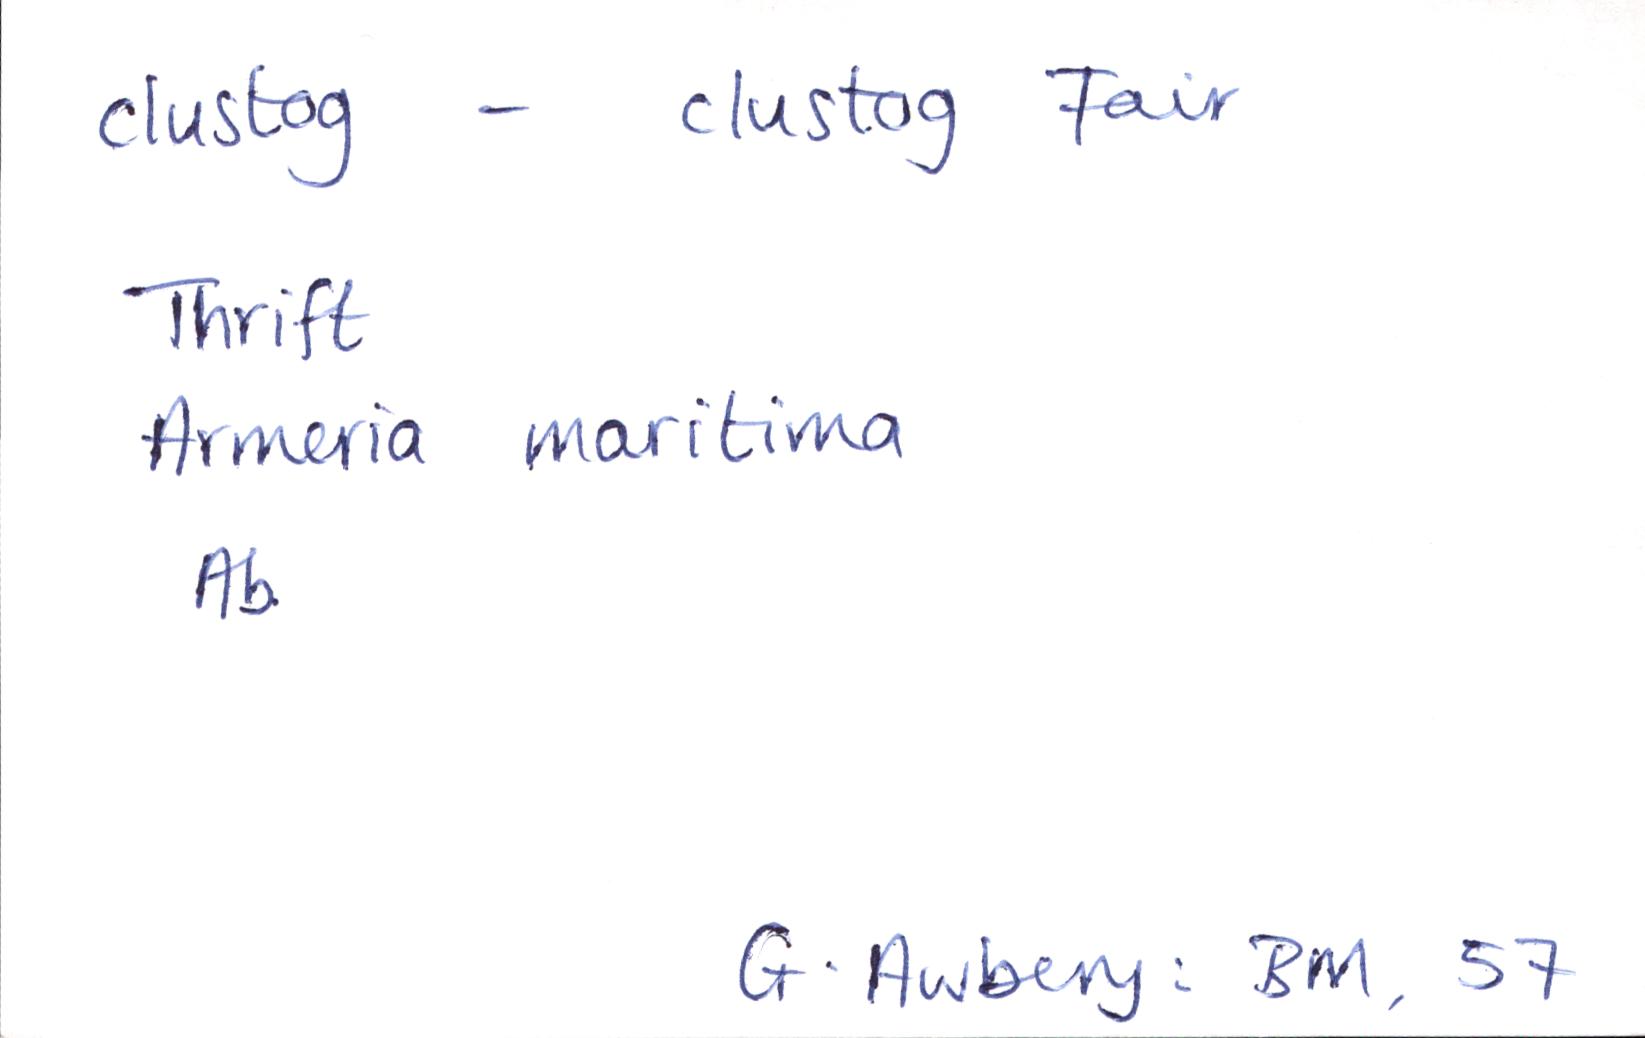 clustog - clustog Fair
Thrift
Armeria maritima
Ab.
G. Awbery: BM, 57